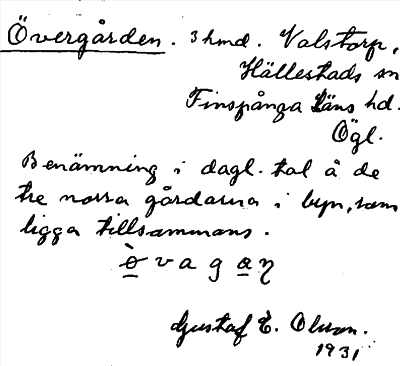 Övergården. 3 hmd. Valstorp,
Hällestads sn
Finspånga läns hd.
Ögl.
Benämning i dagl. tal å de
tre norra gårdarna i byn, som
ligga tillsammans.
ò̱vaga̱ŋ
Gustaf E. Olsson.
1931